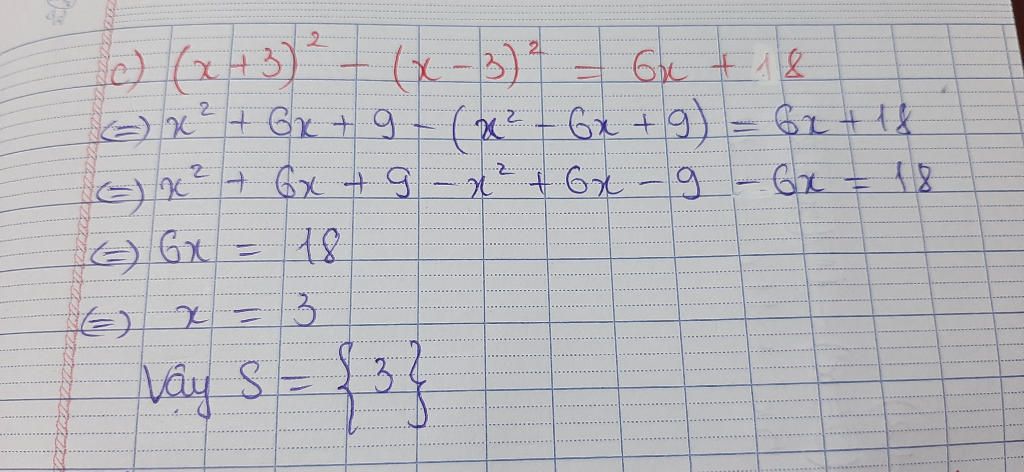 c) (x+3)² - (x-3)² = 6x + 18
(=) x² + 6x + 9 - (x² - 6x + 9) = 6x + 18
(=) x² + 6x + 9 - x² + 6x - 9 - 6x = 18
(=) 6x = 18
(=) x = 3
Vậy S = {3}